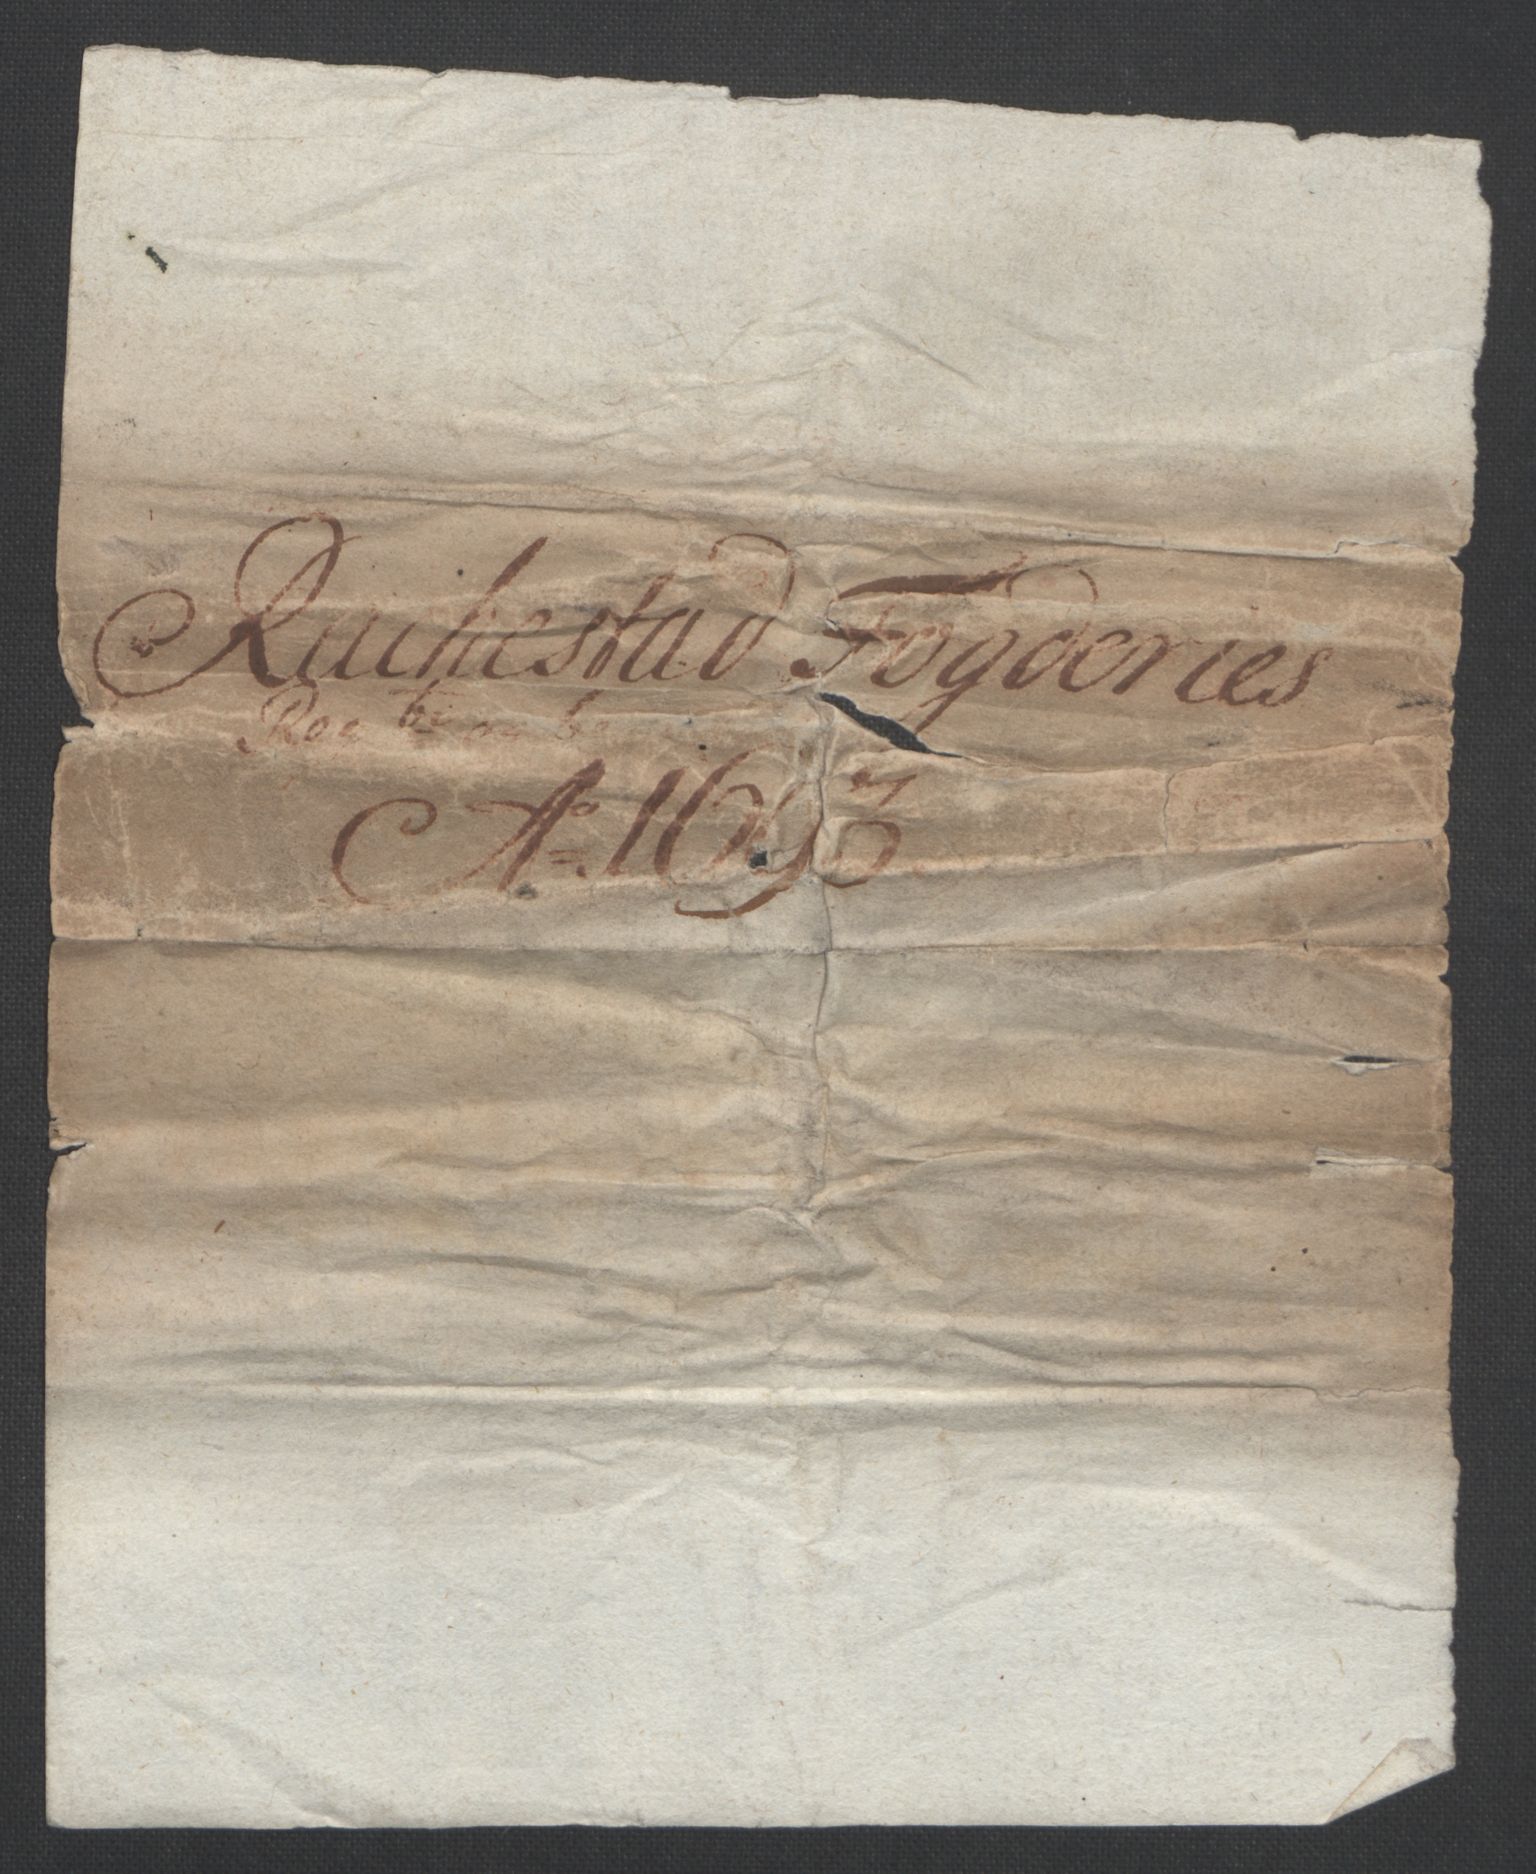 Rachestad Fogderies
Ao. 1693